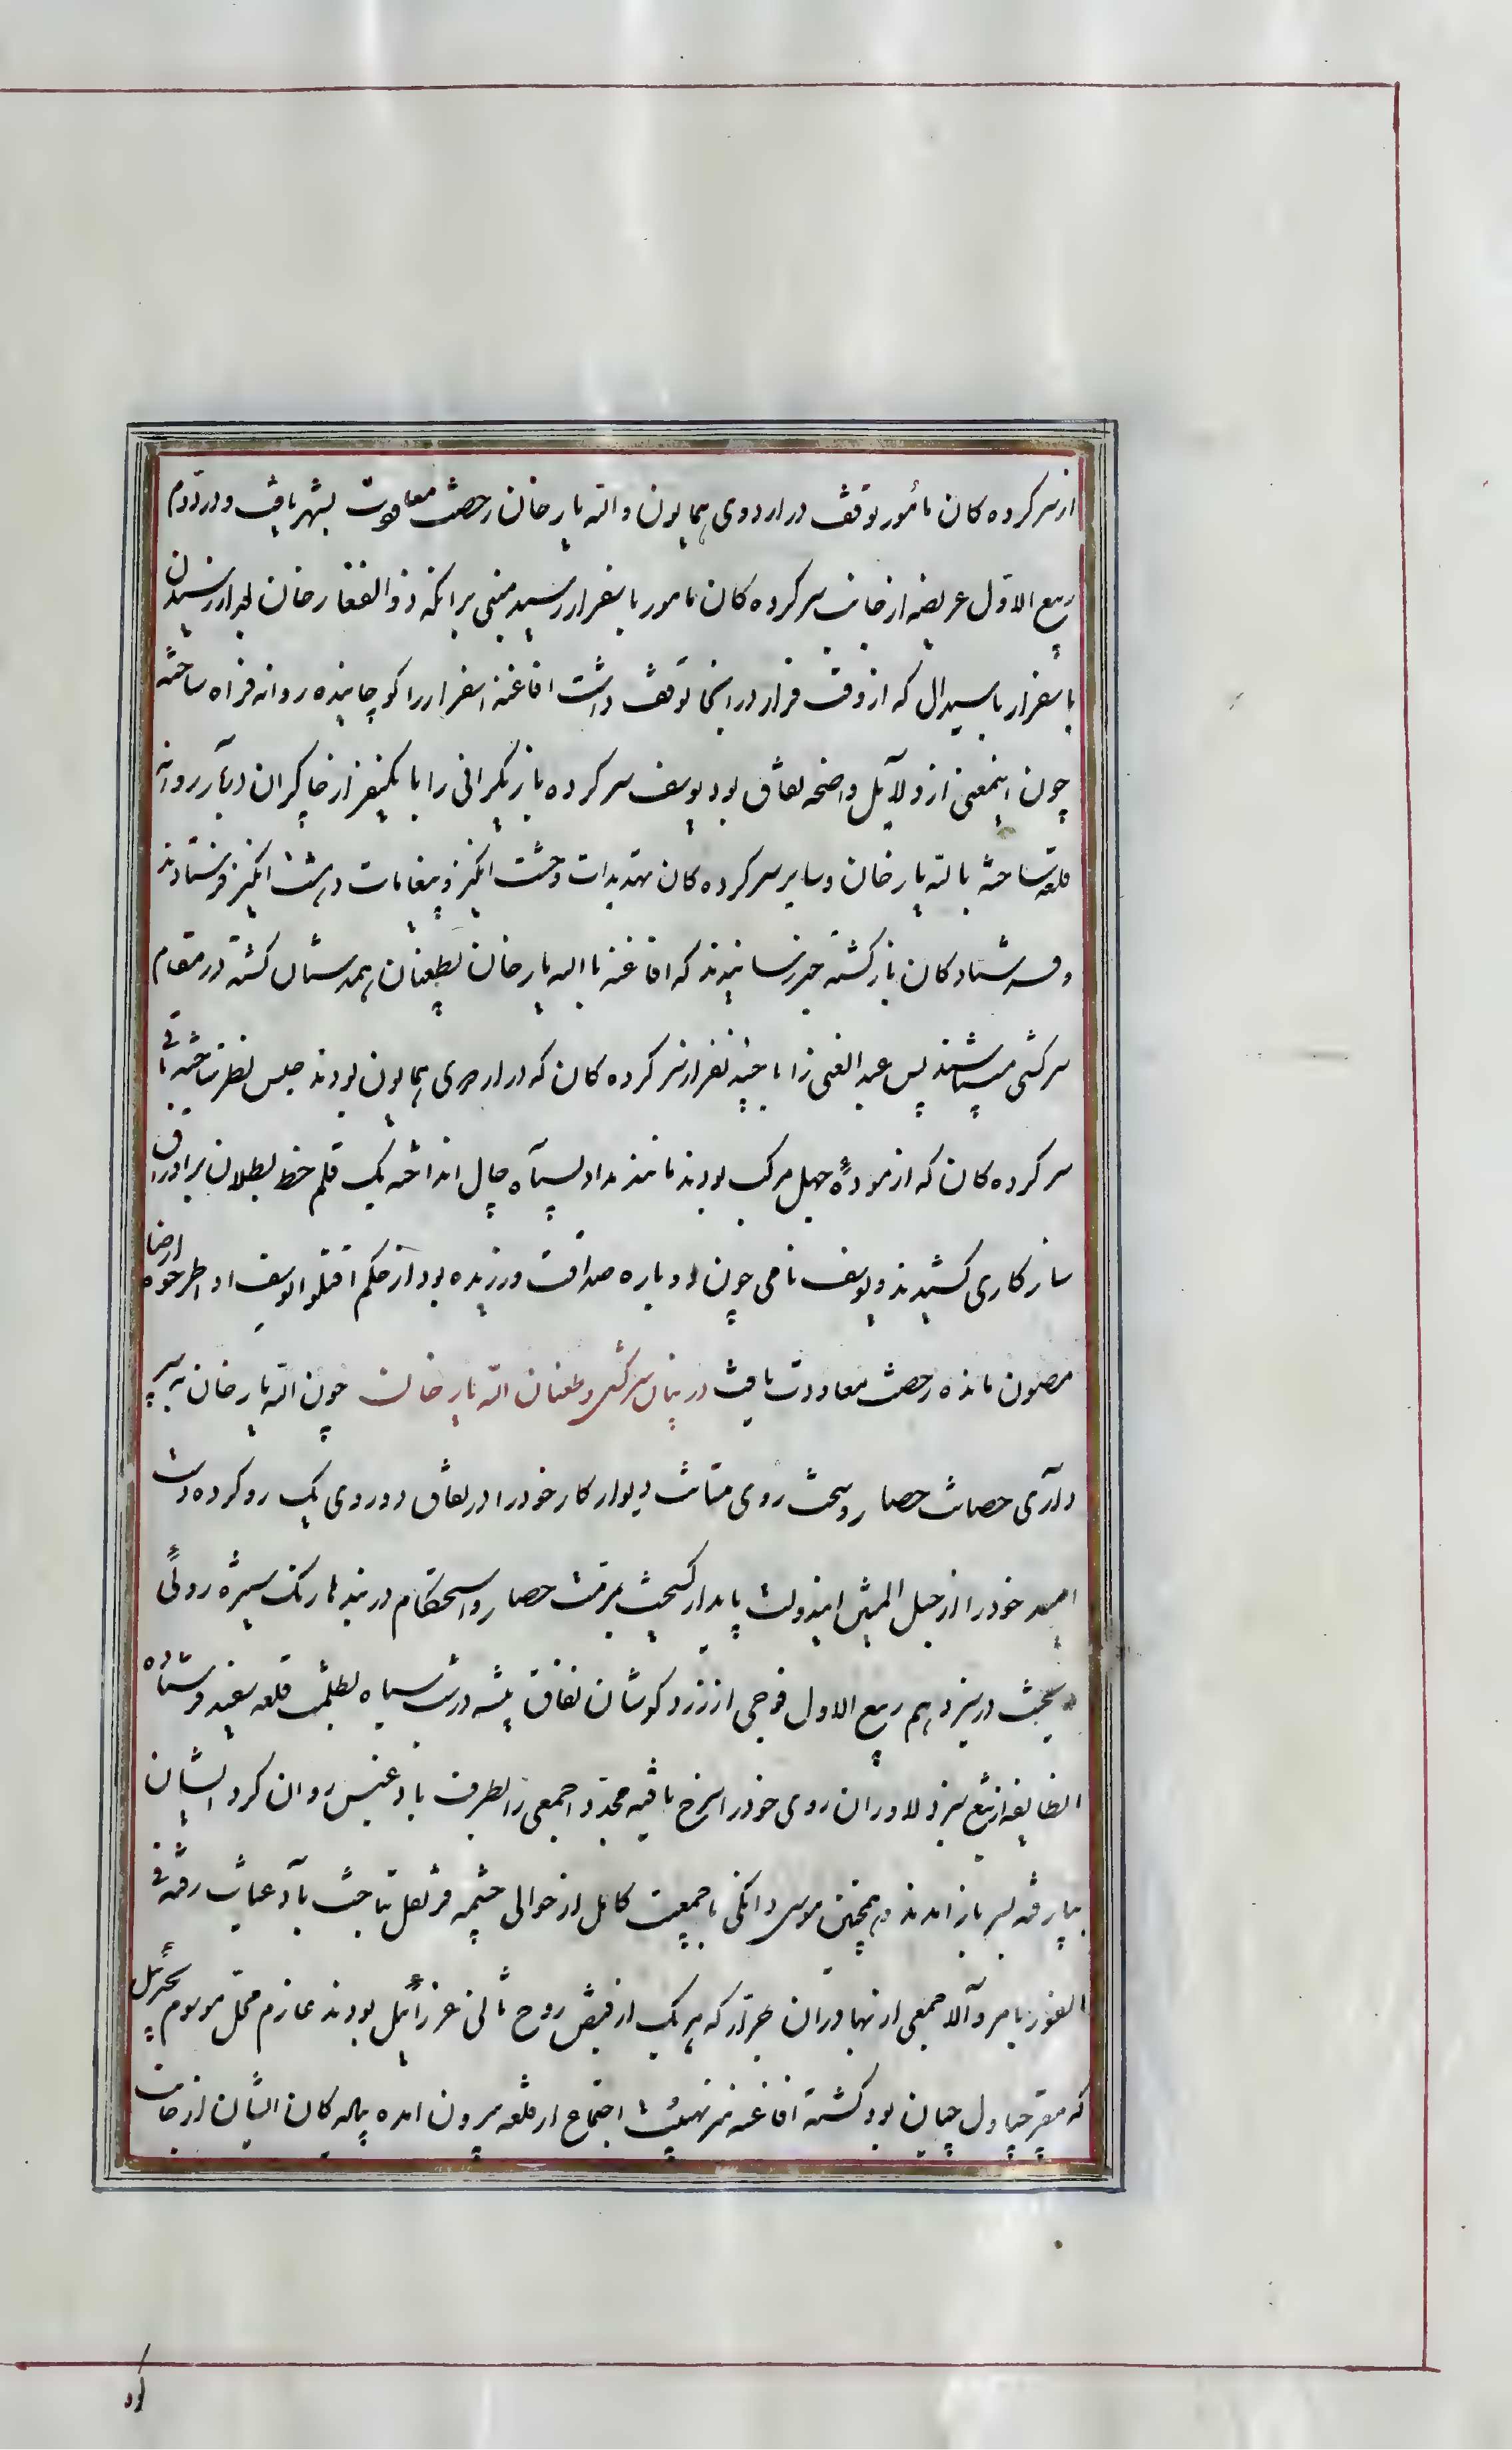 از سرکرده کان مأمور توقف در اردوی همایون و الله یار خان رخصت معاودت بشهر یافت و در دوم
ربیع الاول عریضه از جانب سرکرده کان مامور باسفزار رسید مبنی بر انکه ذوالفقار خان بعد از رسیدن
باسفزار باسیدال که از وقت فرار در انجا توقف داشت افاغنه اسفزار را کوچانیده روانه فراه ساخته
چون اینمعنی از دلایل واضحه نفاق بود یوسف سرکرده باز یکرانی را با یکنفر از چاکران دربار روانه
قلعه ساخته بالله یار خان و سایر سرکرده کان تهدیدات وحشت انگیز و پیغامات دهشت انگیز فرستادند
و فرستاد کان باز کشته خبر رسانیدند که افاغنه با الله یار خان بطغیان همدستان کشته در مقام
سرکشی میباشند پس عبد الغنی را با چند نفر از سرکرده کان که در اردوی همایون بودند حبس نظر ساخته باقی
سرکرده کان که از مودهٔ جهل مرکب بودند مانند مداد بسیاه چال انداخته یک قلم خط بطلان بر اوراق
سازکاری کشیدند و یوسف نامی چون در دباره صداقت ورزیده بود از حکم اقتلوا یوسف او اطرحوه ارضا
مصون مانده رخصت معاودت یافت در بیان سرکشی و طغیان الله یار خان چون الله یار خان به سر
دلآری حصانت حصار و سخت روی متانت دیوار کار خود را در نفاق و دوروی یک رو کرده دست
امید خود را از حبل المتین ایندولت پایدار کسیخت برقت حصار و استحکام دربندها رنک ستیزه روئی
ریخت در سیزدهم ربیع الاول فوجی از زرد کوشان نفاق پیشه در شب سیاه بطلب قلعه سفید فرستاده
انطایفه از تیغ تیز دلاوران روی خود را سرخ یافته مجدد اجمعی را بطرف بادغیس روان کرد ایشان
بپا رفته بسر باز امدند و همچنین موسی دانکی با جمعیت کامل از حوالی چشمه قرنفل بتاخت بآدعیاب رفته فی
الفور بامر والا جمعی از بهادران جرار که هر یک از قبض روح ثانی عزرائیل بودند عازم محل موسوم بجبرئیل
که مقر چپاول چیان بود کشته افاغنه نیز بهیئت اجتماع از قلعه بیرون امده پیاده کان ایشان از خانت